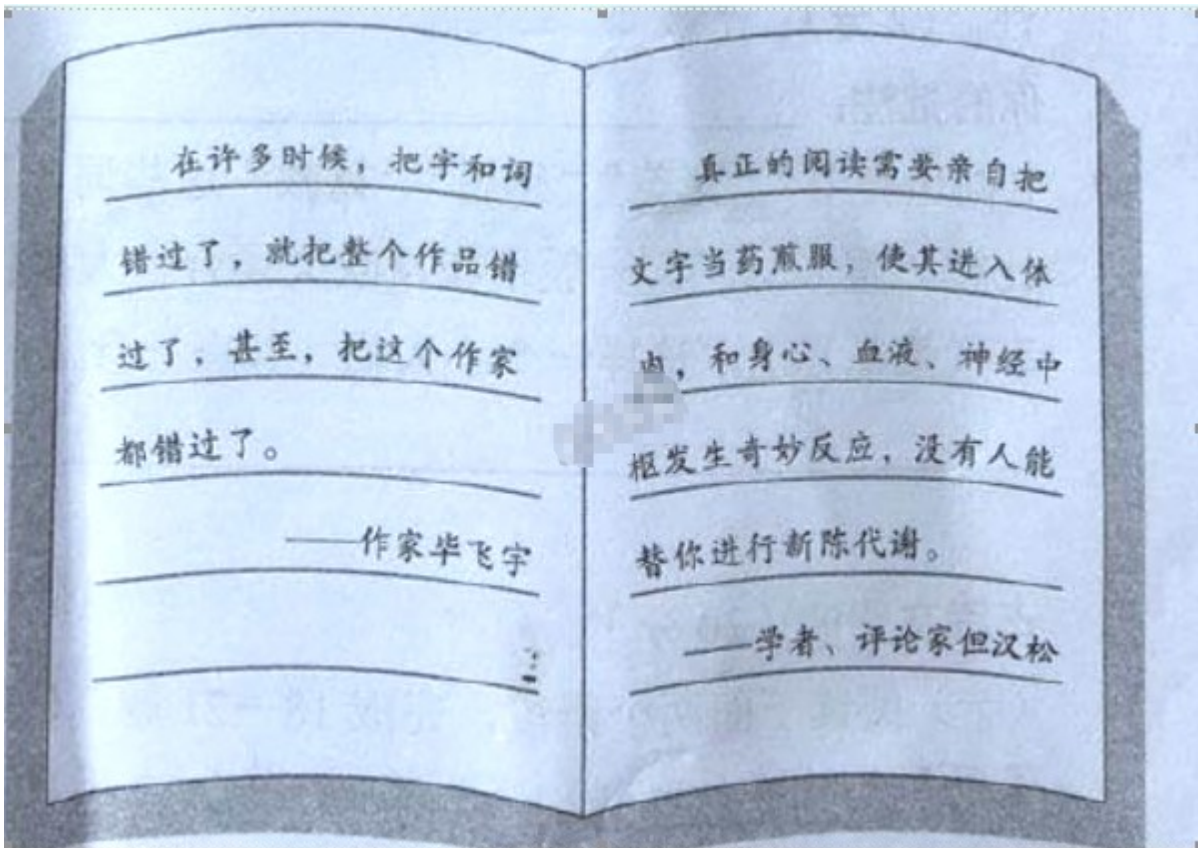 在许多时候，把字和词
错过了，就把整个作品错
过了，甚至，把这个作家
都错过了。
——作家毕飞宇
真正的阅读需要亲自把
文字当药煎服，使其进入体
内，和身心、血液、神经中
枢发生奇妙反应，没有人能
替你进行新陈代谢。
——学者、评论家但汉松